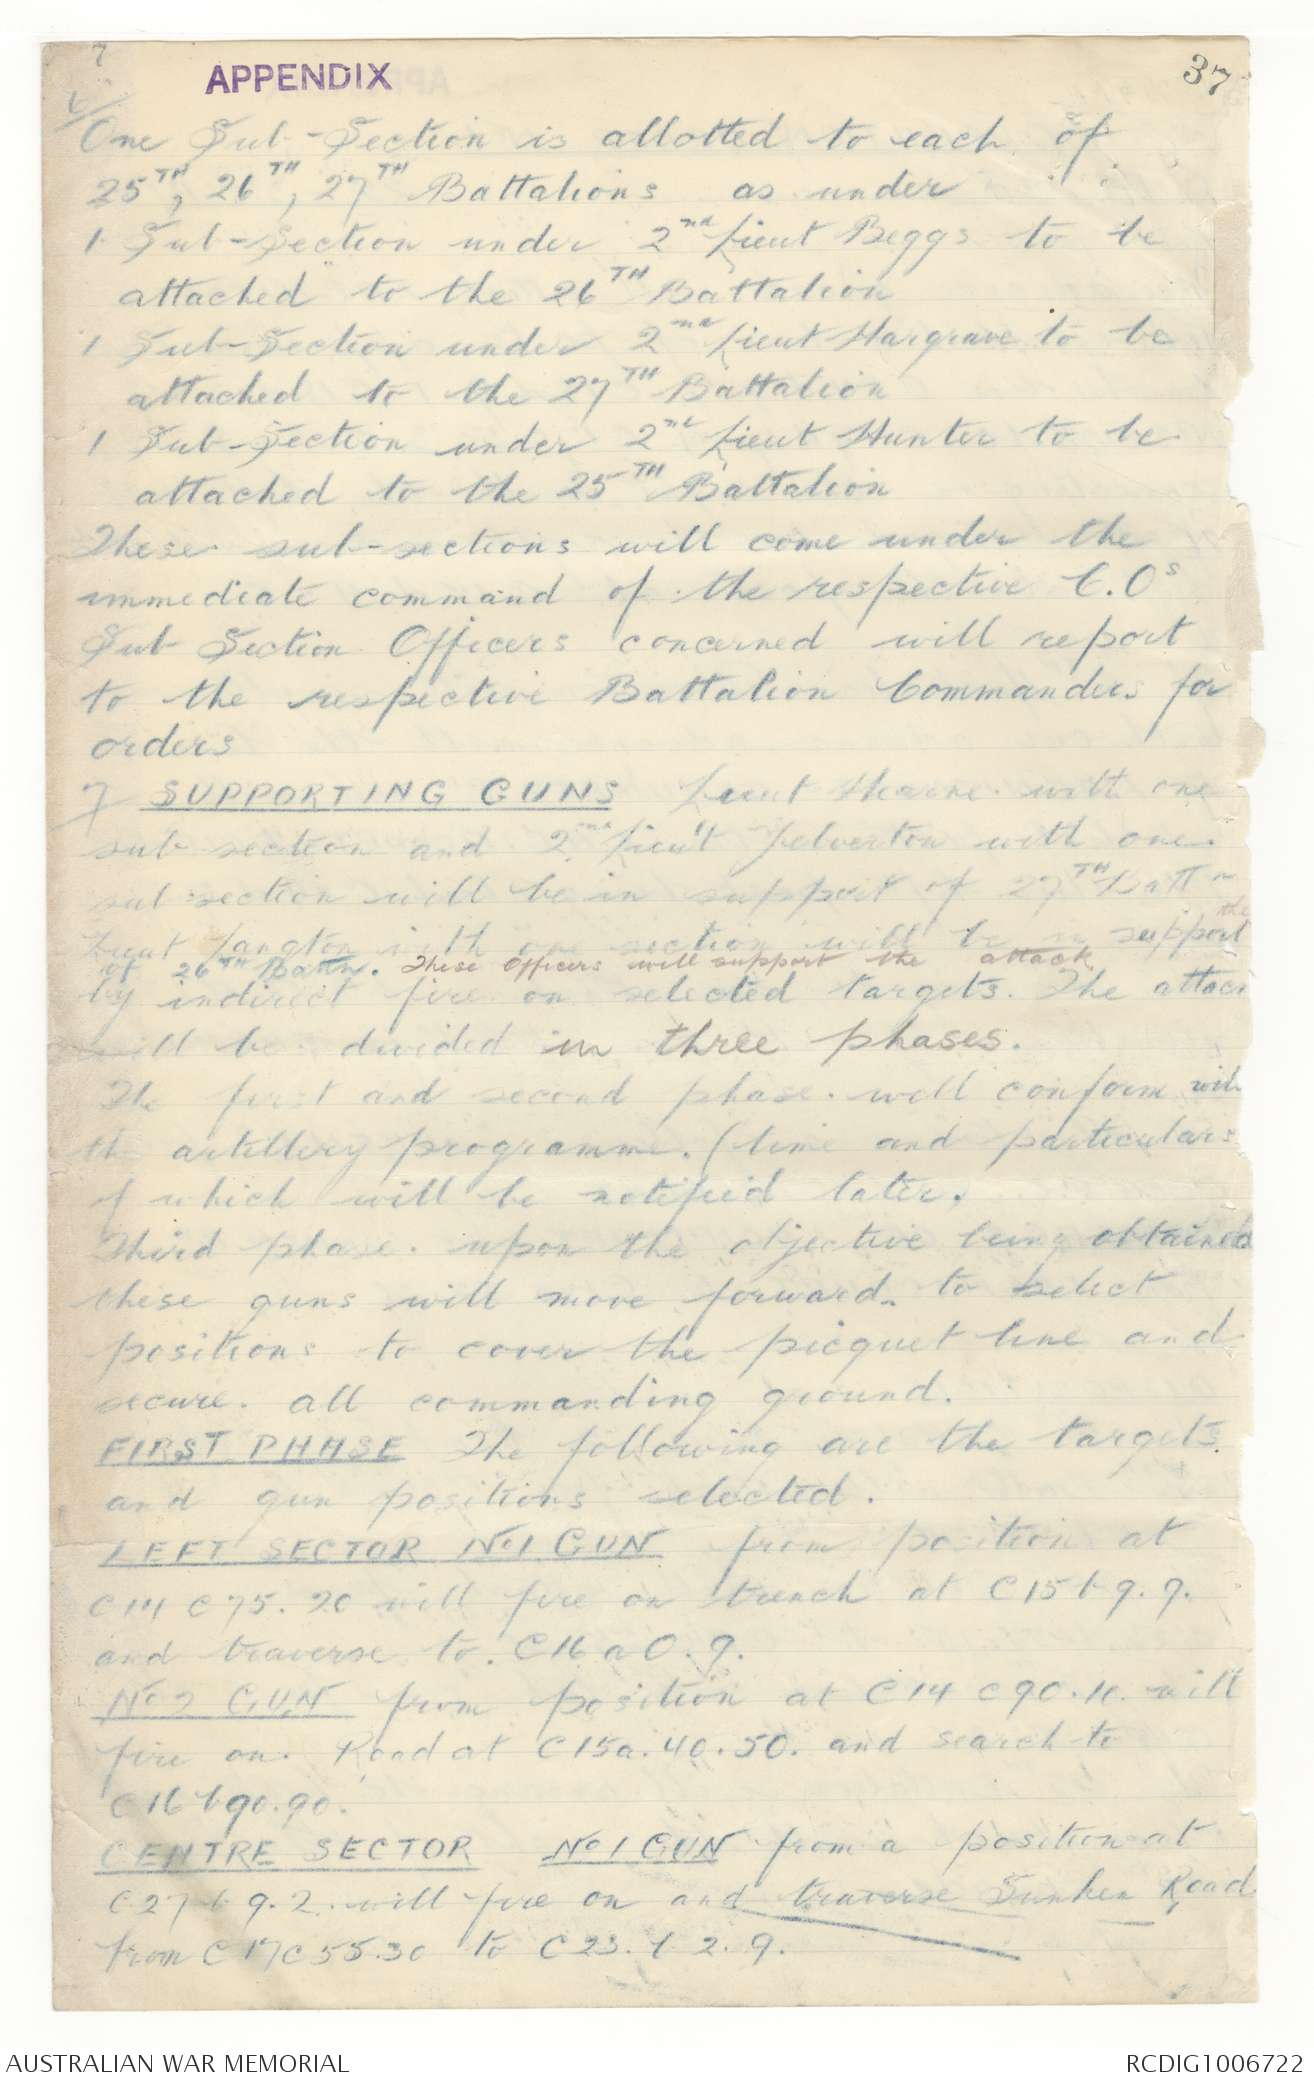 7
APPENDIX
37
6/
One Sub-Section is allotted to each of
25TH, 26TH, 27TH Battalions as under
1 Sub-Section under 2nd Lieut Beggs to be
attached to the 26TH Battalion
1 Sub-Section under 2nd Lieut Hargrave to be
attached to the 27TH Battalion
1 Sub-Section under 2nd Lieut Hunter to be
attached to the 25TH Battalion
These sub-sections will come under the
immediate command of the respective C.Os
Sub Section Officers concerned will report
to the respective Battalion Commanders for
orders
7 SUPPORTING GUNS Lieut Hearne with one
sub section and 2nd Lieut Yelverton with one
sub section will be in support of 27TH Battn
Lieut Langton with one section will be in support
the
of 26TH Battn. These Officers will support the attack
by indirect fire on selected targets. The attack
will be divided in three phases.
The first and second phase will conform with
the artillery programme. (time and particulars
of which will be notified later.
Third phase. upon the objective being obtained
these guns will move forward to select
positions to cover the picquet line and
secure all commanding ground.
FIRST PHASE The following are the targets
and gun positions selected.
LEFT SECTOR No 1 GUN from position at
C14 C75.20 will fire on trench at C15 b 9.9.
and traverse to C16 a 0.9.
No 2 GUN from position at C14 C90.10. will
fire on Road at C15a.40.50. and search to
C16 b 90.90.
CENTRE SECTOR No 1 GUN from a position at
C27 b 9.2. will fire on and traverse Sunken Road
from C17 C55.30 to C23. b 2.9.
AUSTRALIAN WAR MEMORIAL
RCDIG1006722